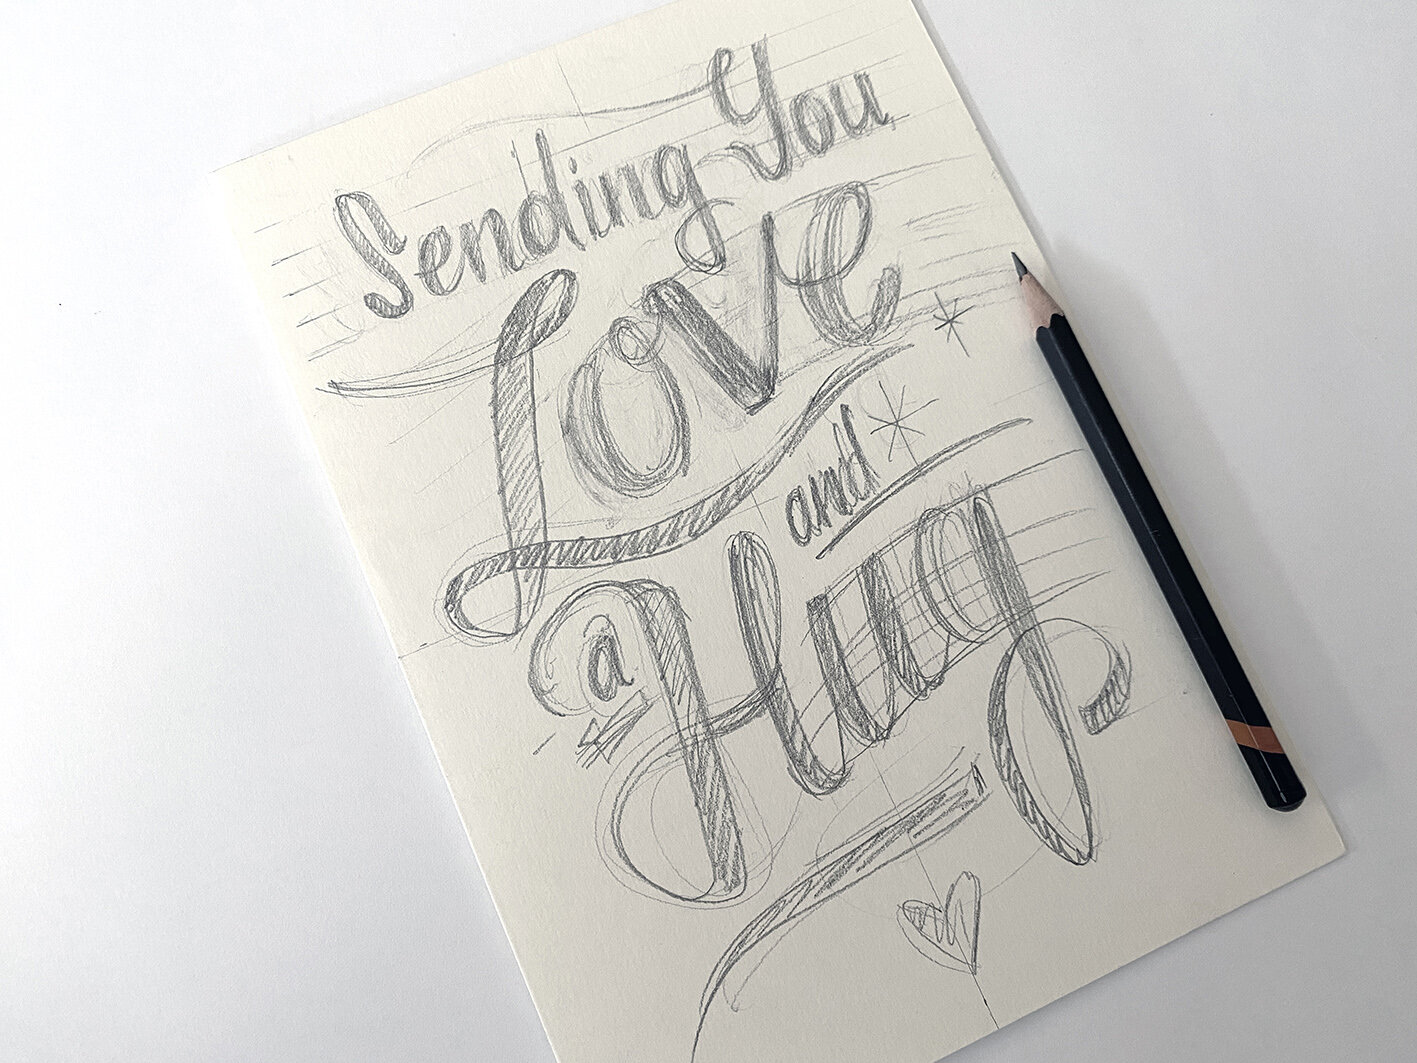 Sending You
Love
and
a Hug